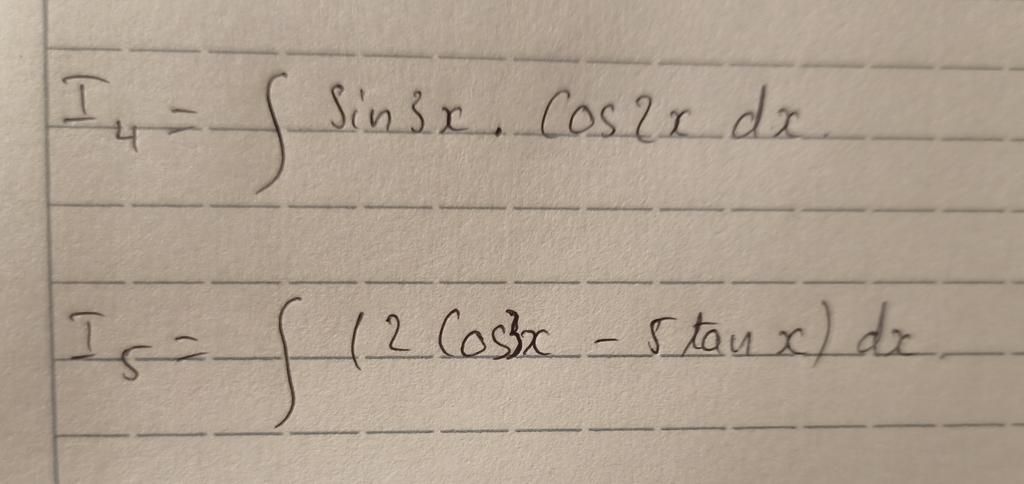 I₄ = ∫ Sin3x . Cos2x dx.
I₅ = ∫ (2 Cos3x - 5 tan x) dx